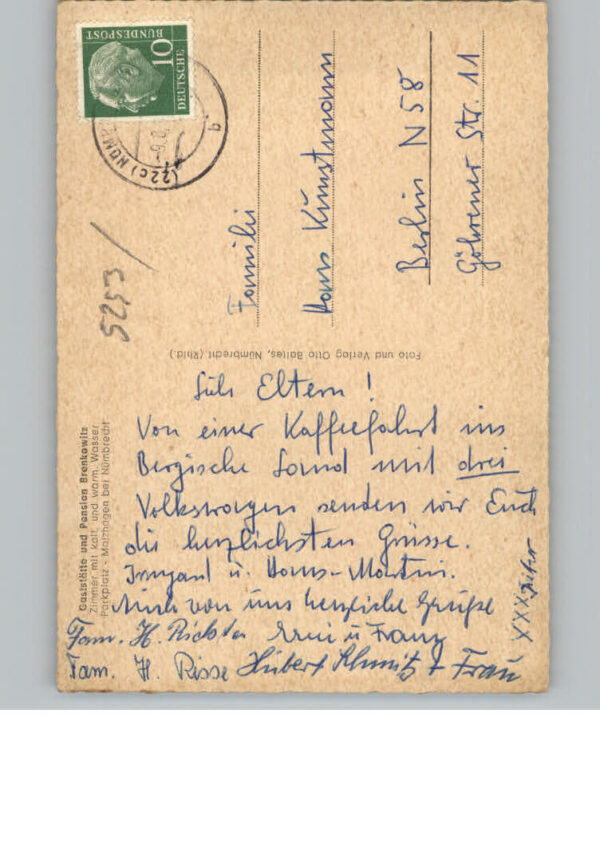 DEUTSCHE
10
BUNDESPOST
(22c) NÜMB
-9.8.
b
5253
Familie
Hans Kunstmann
Berlin N58
Göhrener Str. 11
Foto und Verlag Otto Baltes, Nümbrecht (Rhld.)
Gaststätte und Pension Brenkowitz
Zimmer mit kalt. und warm. Wasser
Parkplatz - Malzhagen bei Nümbrecht
Liebe Eltern!
Von einer Kaffeefahrt ins
Bergische Land mit drei
Volkswagen senden wir Euch
die herzlichsten Grüsse.
Irmgard u. Hans-Martin.
Auch von uns herzliche Grüße
Fam. H. Richter Erni u Franz
Fam. H. Risse Hubert Schmitz + Frau
XXX Peter